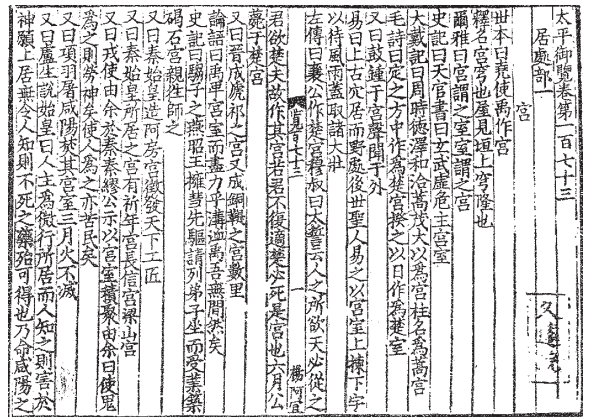 太平御覽卷第一百七十三
居處部一
宮
世本曰堯使禹作宮
釋名宮穹也屋見垣上穹隆也
爾雅曰宮謂之室室謂之宮
史記曰天官書曰玄武虛危主宮室
大戴記曰周時德澤和洽蒿茂大以為宮柱名為蒿宮
毛詩曰定之方中作為楚宮揆之以日作為楚室
又曰鼓鍾于宮聲聞于外
易曰上古穴居而野處後世聖人易之以宮室上棟下宇
以待風雨蓋取諸大壯
左傳曰襄公作楚宮穆叔曰太誓云人之所欲天必從之
一
楊阿宜
君欲楚夫故作其宮若君不復適楚必死是宮也六月公
薨于楚宮
又曰晉成虒祁之宮又成銅鞮之宮數里
論語曰禹卑宮室而盡力乎溝洫禹吾無間然矣
史記曰騶子之燕昭王擁彗先驅請列弟子坐而受業築
碣石宮親往師之
又曰秦始皇造阿房宮徵發天下工匠
又曰秦始皇所居之宮有祈年宮長信宮梁山宮
又曰戎使由余於秦秦繆公示以宮室積聚由余曰使鬼
為之則勞神矣使人為之亦苦民矣
又曰項羽屠咸陽於其宮室三月火不滅
又曰盧生說始皇曰人主為微行所居而人知之則害於
神願上居無令人知則不死之藥殆可得也乃命咸陽之